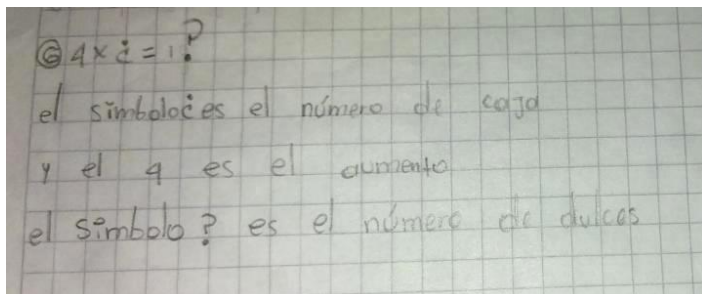 ⑥ 4 x ¿ = 1?
el simbolo ¿ es el número de caja
y el 4 es el aumento
el simbolo ? es el número de dulces